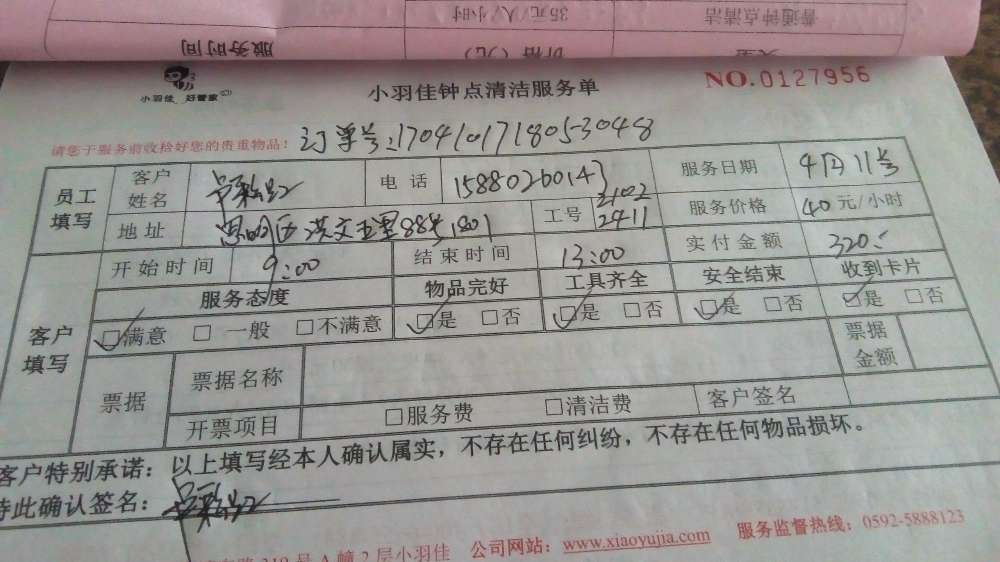 普通钟点清洁 35元/人/小时
价格（元） 服务时间
小羽佳 好管家
小羽佳钟点清洁服务单
NO.0127956
请您于服务前收拾好您的贵重物品！
订单号:1704101718053048
员工填写 客户姓名 电话 15880260143 服务日期 4月11号
地址 思明区洪文五里88号1801 工号 2102 2411 服务价格 40元/小时
客户填写 开始时间 9:00 结束时间 13:00 实付金额 320
服务态度 物品完好 工具齐全 安全结束 收到卡片
满意 一般 不满意 是 否 是 否 是 否 是 否
票据 票据名称 票据金额
开票项目 服务费 清洁费 客户签名
客户特别承诺：以上填写经本人确认属实，不存在任何纠纷，不存在任何物品损坏。
特此确认签名：
号A幢2层小羽佳 公司网站：www.xiaoyujia.com 服务监督热线：0592-5888123